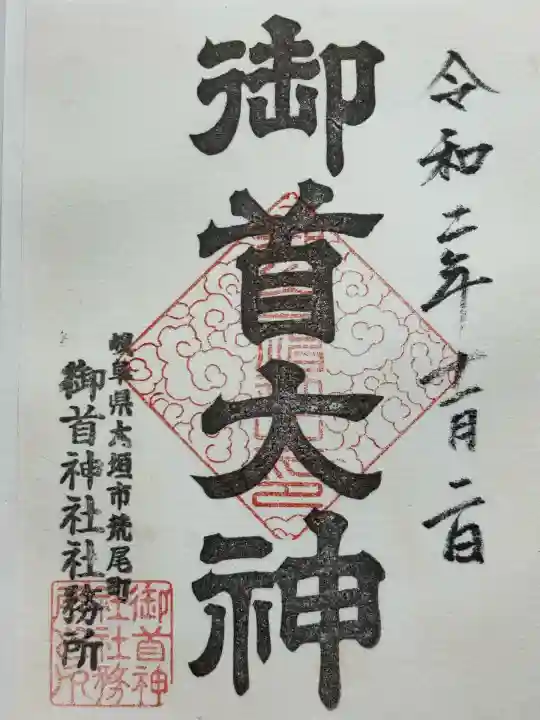 令和二年十一月二日
御首大神
岐阜県大垣市荒尾町
御首神社社務所
御首神
社社務
所之印